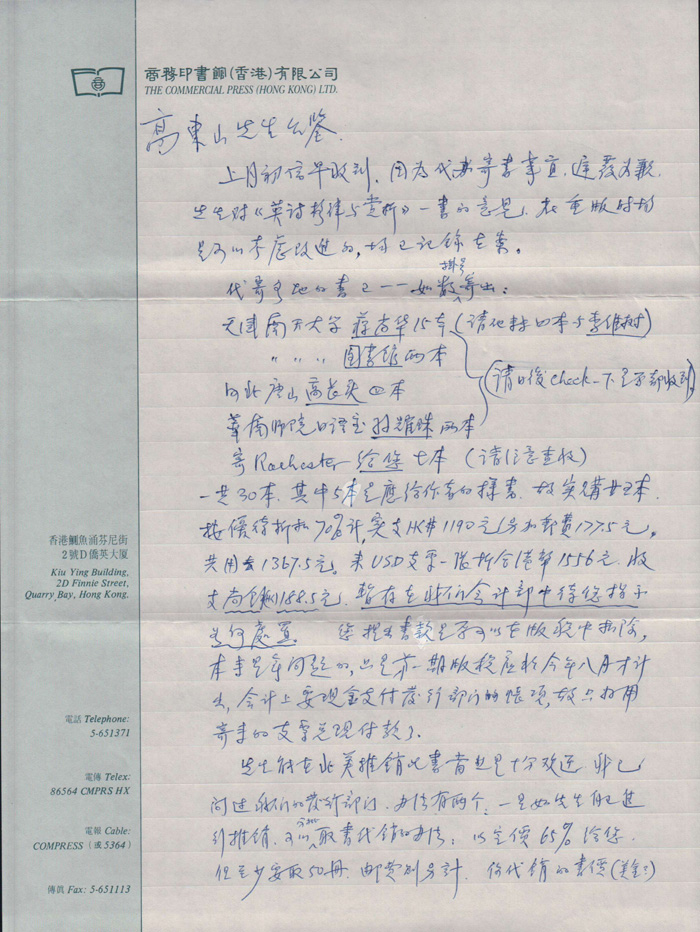 商務印書館(香港)有限公司
THE COMMERCIAL PRESS (HONG KONG) LTD.
高東山先生台鑒.
上月初信早收到, 因为代办寄書事宜, 遲覆为歉.
先生对《英詩格律与赏析》一書的意見, 在重版时
是可以考慮改進的, 已記錄在案。
掛号
代寄各地的書已一一如数寄出:
天津南开大学 蔣尚华15本 (请他转四本与李维树)
〃 〃 〃 圖書館两本
河北唐山高长头四本
(请日後check一下是否都收到)
華南师院日语室 孙耀珠两本
寄Rochester给您七本 (请注意查收)
一共30本. 其中5本是應给作者的樣書. 故实購廿五本.
按優待折扣70%计, 实支HK$1190元, 另加郵費177.5元,
共用去1367.5元. 来USD支票一张折合港幣1556元. 收
支尚余剩188.5元, 暫存在我们会计部中待您指示
如何處置. 您提出書款是否可以在版税中扣除,
本来是无问题的, 只是第一期版税應於今年八月才计
出, 会计上要现金支付发行部门的帳項, 故只好用
寄来的支票兑现付款了.
先生能在北美推销此書者也是十分欢迎. 我已
问过我们的发行部门. 办法有两个, 一是如先生自己進
行推销, 可以取書代销的办法: 以定價65%给您.
但至少要取50冊. 郵费则另计. 您代销的書價(美金?)
香港鰂魚涌芬尼街
2號D僑英大厦
Kiu Ying Building,
2D Finnie Street,
Quarry Bay, Hong Kong.
電話 Telephone:
5-651371
電傳 Telex:
86564 CMPRS HX
電報 Cable:
COMPRESS (或5364)
傳眞 Fax: 5-651113